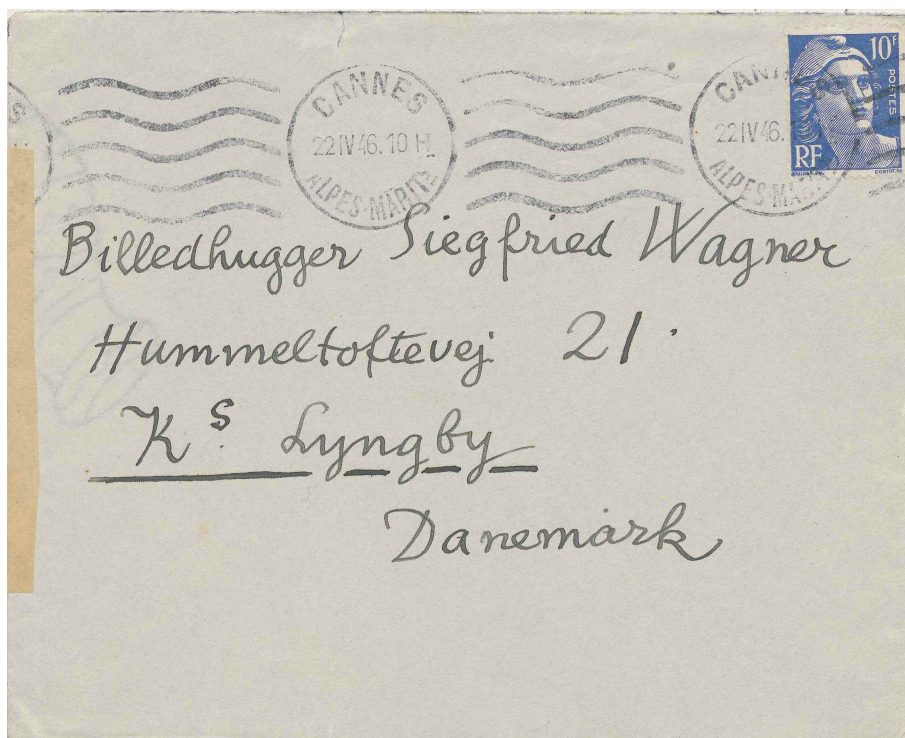 CANNES
22 IV 46. 10 H
ALPES-MARITᴱˢ
CANN
22 IV 46.
ALPES-MARI
10F
POSTES
RF
Billedhugger Siegfried Wagner
Hummeltoftevej 21.
Kˢ. Lyngby
Danemark